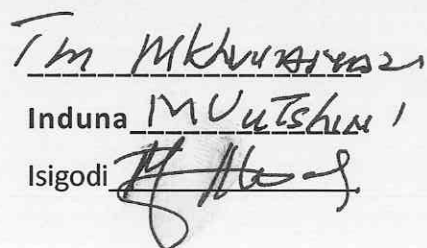 TM Mkhwanazi
Induna Mvutshini
Isigodi